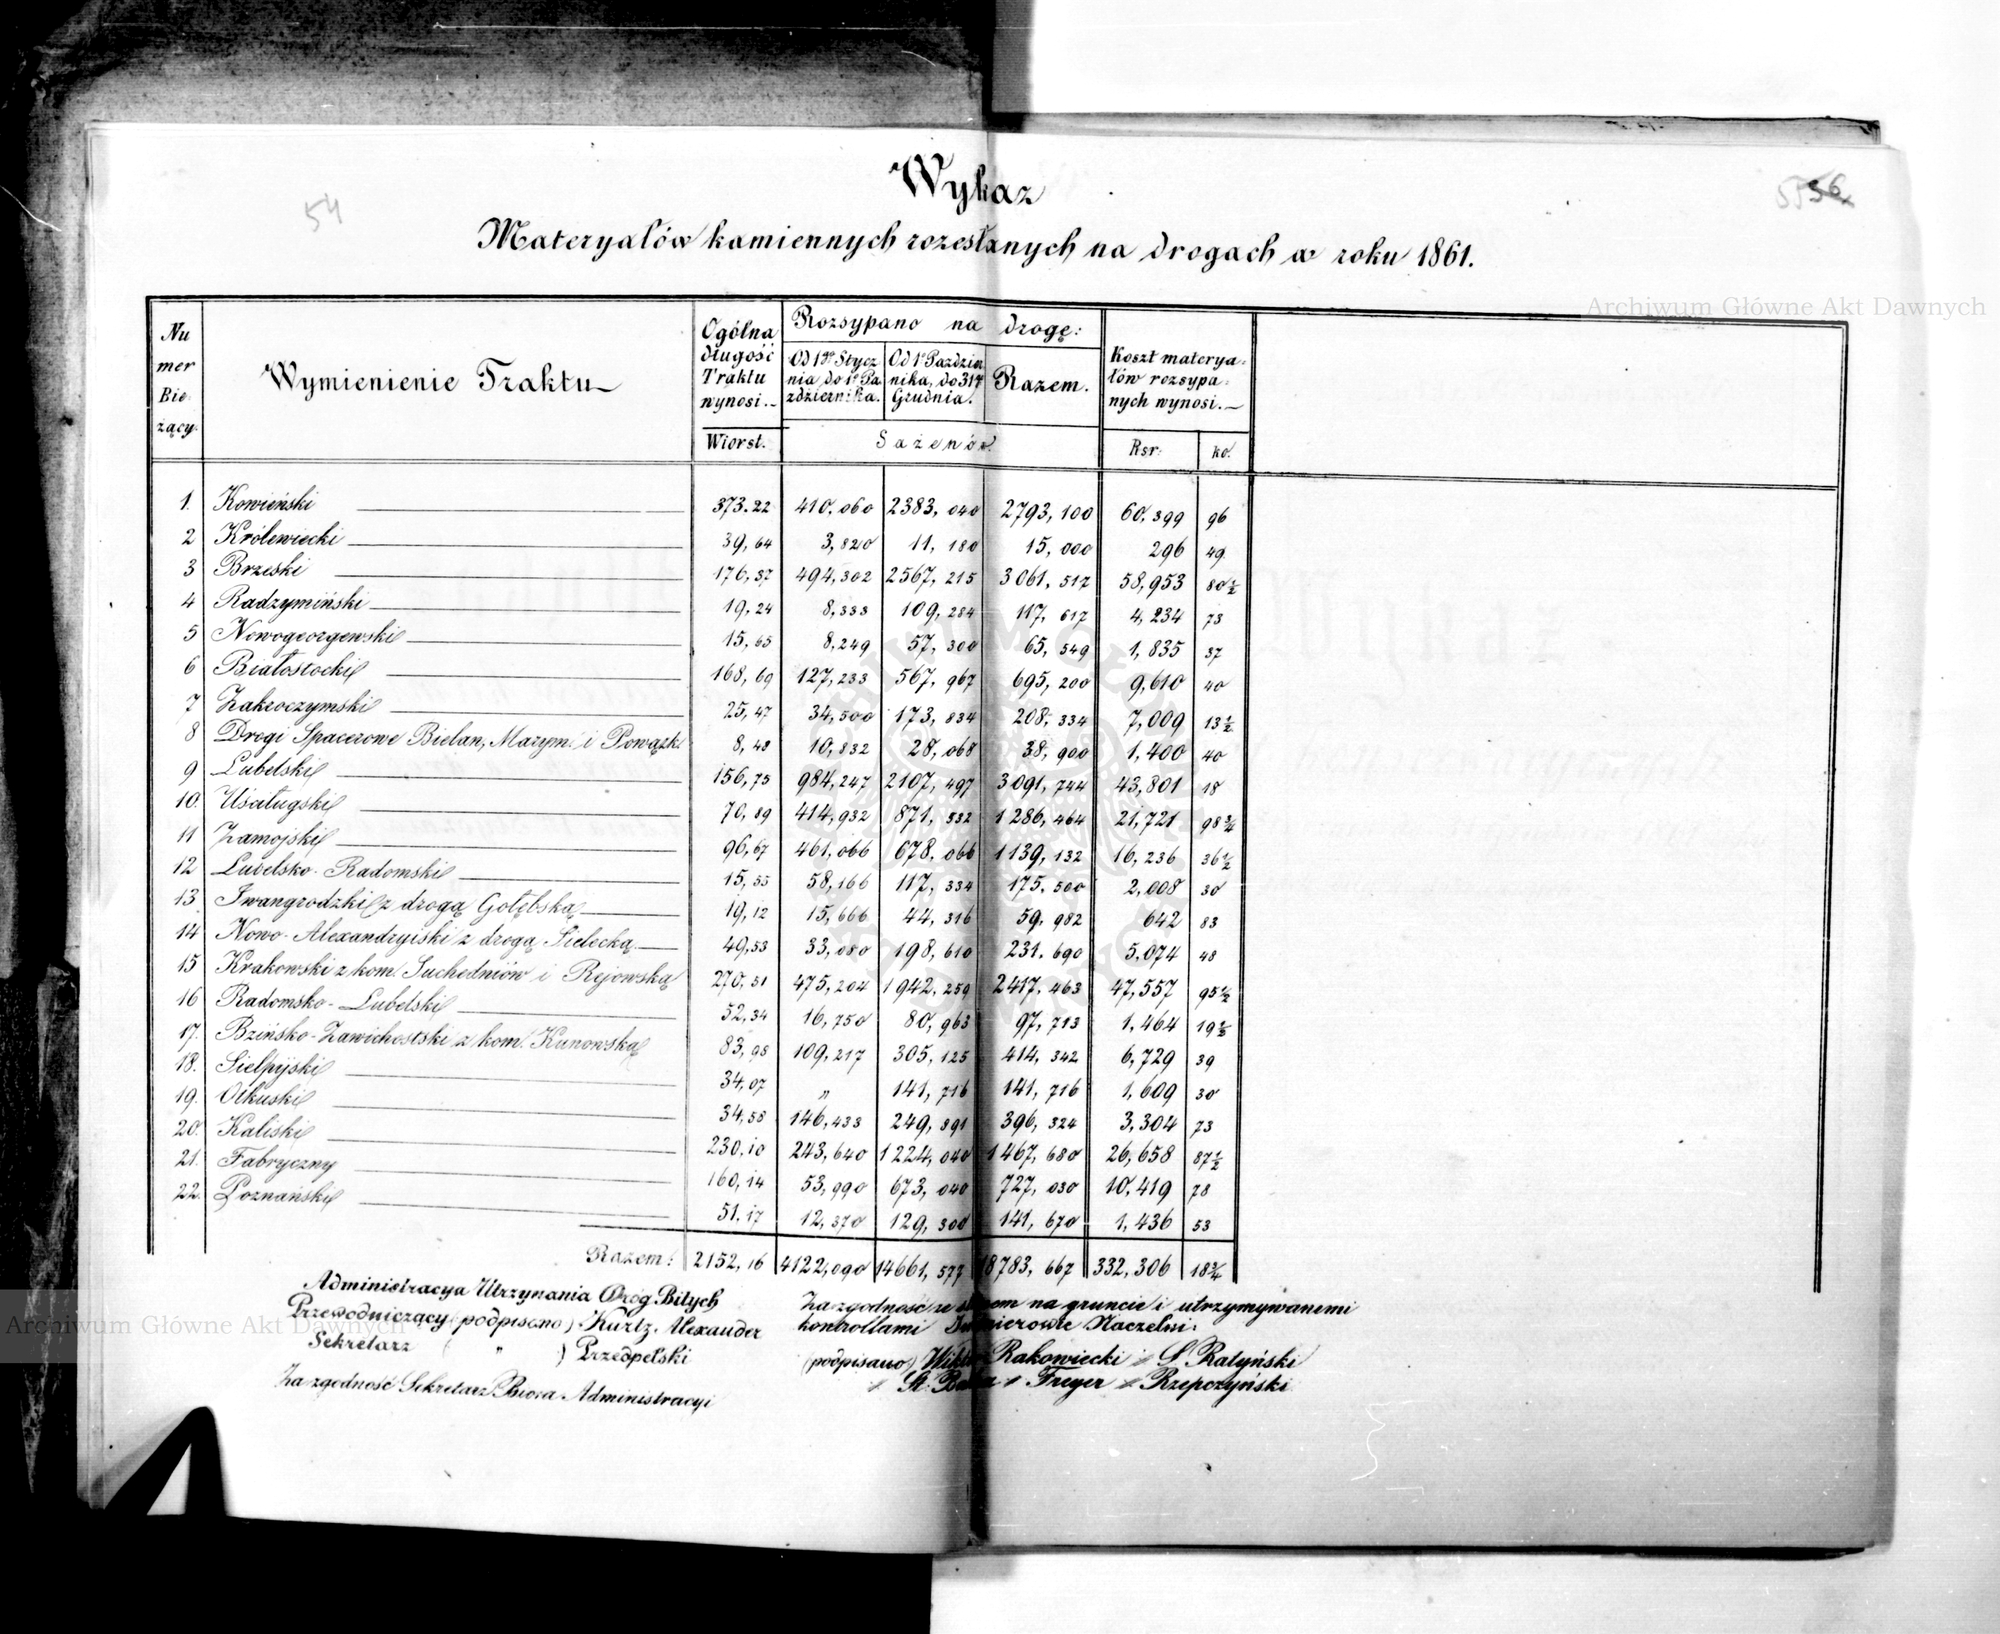 54
56
Wykaz
Materyałów kamiennych rozesłanych na drogach w roku 1861.
Archiwum Główne Akt Dawnych
Numer Bieżący.
Wymienienie Traktu
Ogólna długość Traktu wynosi.
Wiorst.
Rozsypano na drogę:
Od 1go Stycznia, do 1o Października.
Od 1o Października, do 31o Grudnia.
Razem.
Sażenów
Koszt materyałów rozsypanych wynosi.
Rsr. ko.
1. Kowieński 373.22 410,060 2383,040 2793,100 60,399 96
2 Królewiecki 39,64 3,820 11,180 15,000 296 49
3 Brzeski 176,37 494,302 2567,215 3061,517 58,953 80 1/2
4 Radzymiński 19,24 8,333 109,284 117,617 4,234 73
5 Nowogeorgewski 15,65 8,249 57,300 65,549 1,835 37
6 Białostocki 168,69 127,233 567,967 695,200 9,610 40
7 Zakroczymski 25,47 34,500 173,834 208,334 7,009 13 1/2
8 Drogi Spacerowe Bielan, Marym. i Powązk 8,48 10,832 28,068 38,900 1,400 40
9 Lubelski 156,75 984,247 2107,497 3091,744 43,801 18
10. Uściługski 70,89 414,932 871,532 1286,464 21,721 98 3/4
11 Zamojski 96,67 461,066 678,066 1139,132 16,236 36 1/2
12 Lubelsko-Radomski 15,55 58,166 117,334 175,500 2,008 30
13 Iwangrodzki z drogą Gołębską 19,12 15,666 44,316 59,982 642 83
14 Nowo-Alexandryiski z drogą Sielecką 49,53 33,080 198,610 231,690 5,074 48
15 Krakowski z kom. Suchedniów i Rejowską 270,51 475,204 1942,259 2417,463 47,557 95 1/2
16 Radomsko-Lubelski 52,34 16,750 80,963 97,713 1,464 19 1/2
17. Bzińsko-Zawichostski z kom. Kunowską 83,98 109,217 305,125 414,342 6,729 39
18. Sielpijski 34,07 " 141,716 141,716 1,609 30
19. Olkuski 34,58 146,433 249,891 396,324 3,304 73
20. Kaliski 230,10 243,640 1224,040 1467,680 26,658 87 1/2
21. Fabryczny 160,14 53,990 673,040 727,030 10,419 78
22. Poznański 51,17 12,370 129,300 141,670 1,436 53
Razem: 2152,16 4122,090 14661,577 18783,667 332,306 18 3/4
Administracya Utrzymania Dróg Bitych
Przewodniczący (podpisano) Kurtz. Alexander
Sekretarz ( " ) Przedpełski
Za zgodność Sekretarz Biura Administracyi
Za zgodność ze stanem na gruncie i utrzymywanemi
kontrollami Inżynierowie Naczelni:
(podpisano) Wiktor Rakowiecki " S. Ratyński
" St. " Freyer " Rzepczyński
Archiwum Główne Akt Dawnych